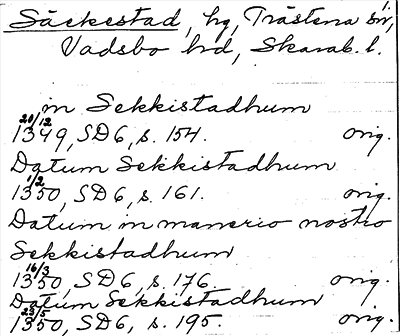 Säckestad, hg, Trästena sn,
Vadsbo hd, Skarab. l.
in Sekkistadhum
20/12
1349, SD6, s. 154. orig.
Datum Sekkistadhum
1/2
1350, SD6, s. 161. orig.
Datum in manerio nostro
Sekkistadhum
16/3
1350, SD6, s. 176. orig.
Datum Sekkistadhum
23/5
1350, SD6, s. 195. orig.